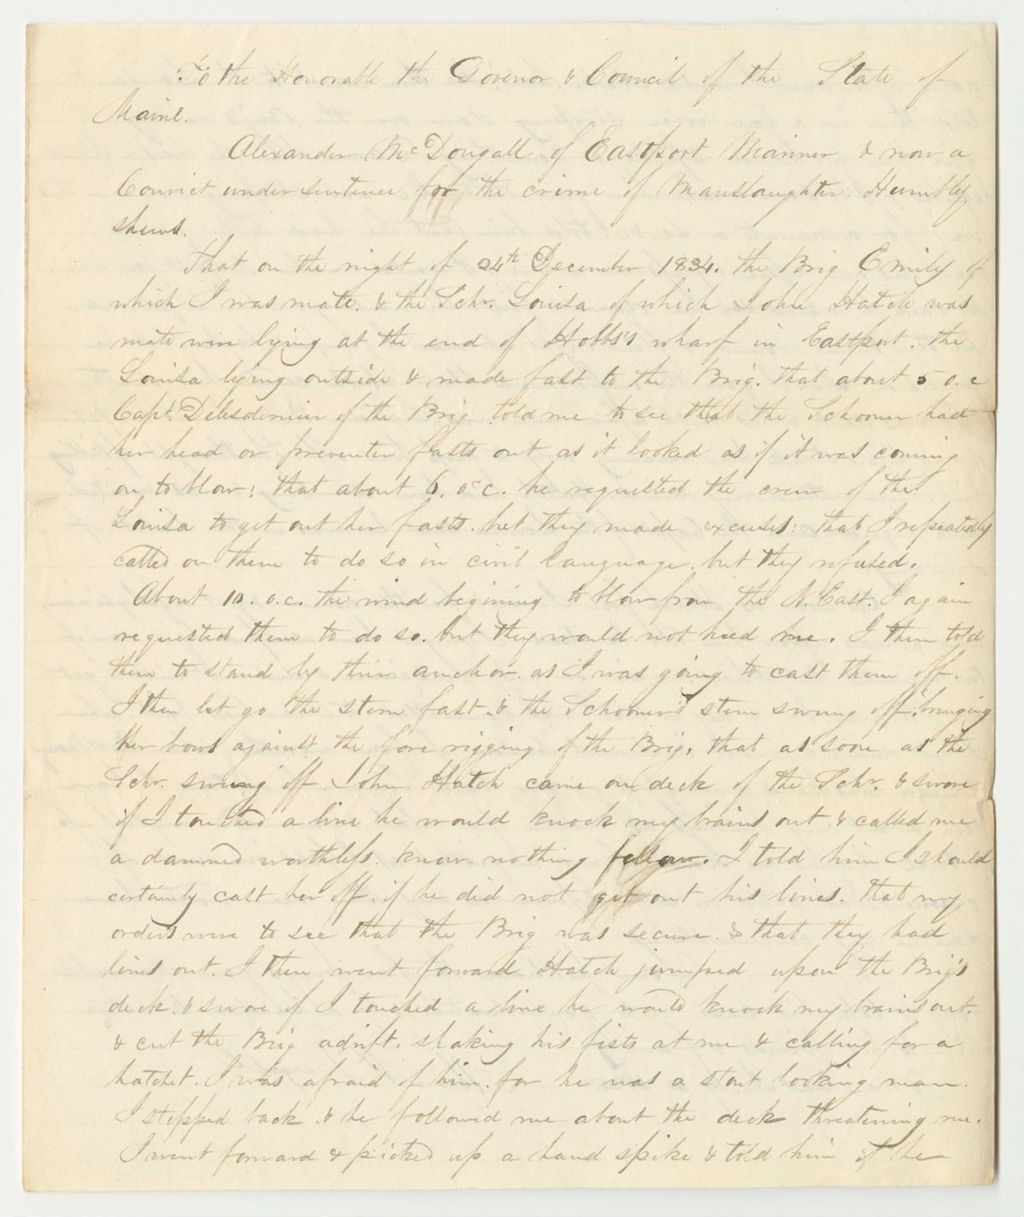 To the Honorable the Govenor & Council of the State of
Maine.
Alexander McDougall of Eastport. Marinner & now a
Convict under sentence for the crime of Manslaughter. Humbly
shews.
That on the night of 24th December 1834. the Brig Emily of
which I was mate. & the Schr. Louisa of which John Hatch was
mate were lying at the end of Hobbs's wharf in Eastport. the
Louisa lying outside & made fast to the Brig. that about 5 o.c
Capt. Delesdernier of the Brig told me to see that the Schooner had
her head or preventer fasts out. as it looked as if it was coming
on to blow; that about 6. o.c. he requested the crew of the
Louisa to get out her fasts. but they made excuses: that I repeatedly
called on them to do so in civil language. but they refused.
About 10. o.c. the wind begining to blow from the N. East. I again
requested them to do so. but they would not heed me. I then told
them to stand by their anchor. as I was going to cast them off.
I then let go the stern fast. & the Schooner's stern swung off. bringing
her bows against the fore rigging of the Brig. that as soon as the
Schr. swung off John Hatch came on deck of the Schr. & swore
if I touched a line he would knock my brains out. & called me
a damned worthless. know-nothing fellow. I told him I should
certainly cast her off. if he did not get out his lines. that my
orders were to see that the Brig was secure. & that they had
lines out. I then went forward. Hatch jumped upon the Brig's
deck. & swore if I touched a line he would knock my brains out.
& cut the Brig adrift. shaking his fists at me & calling for a
hatchet. I was afraid of him. for he was a stout looking man.
I stepped back. & he followed me about the deck threatening me.
I went forward & picked up a hand spike & told him if he